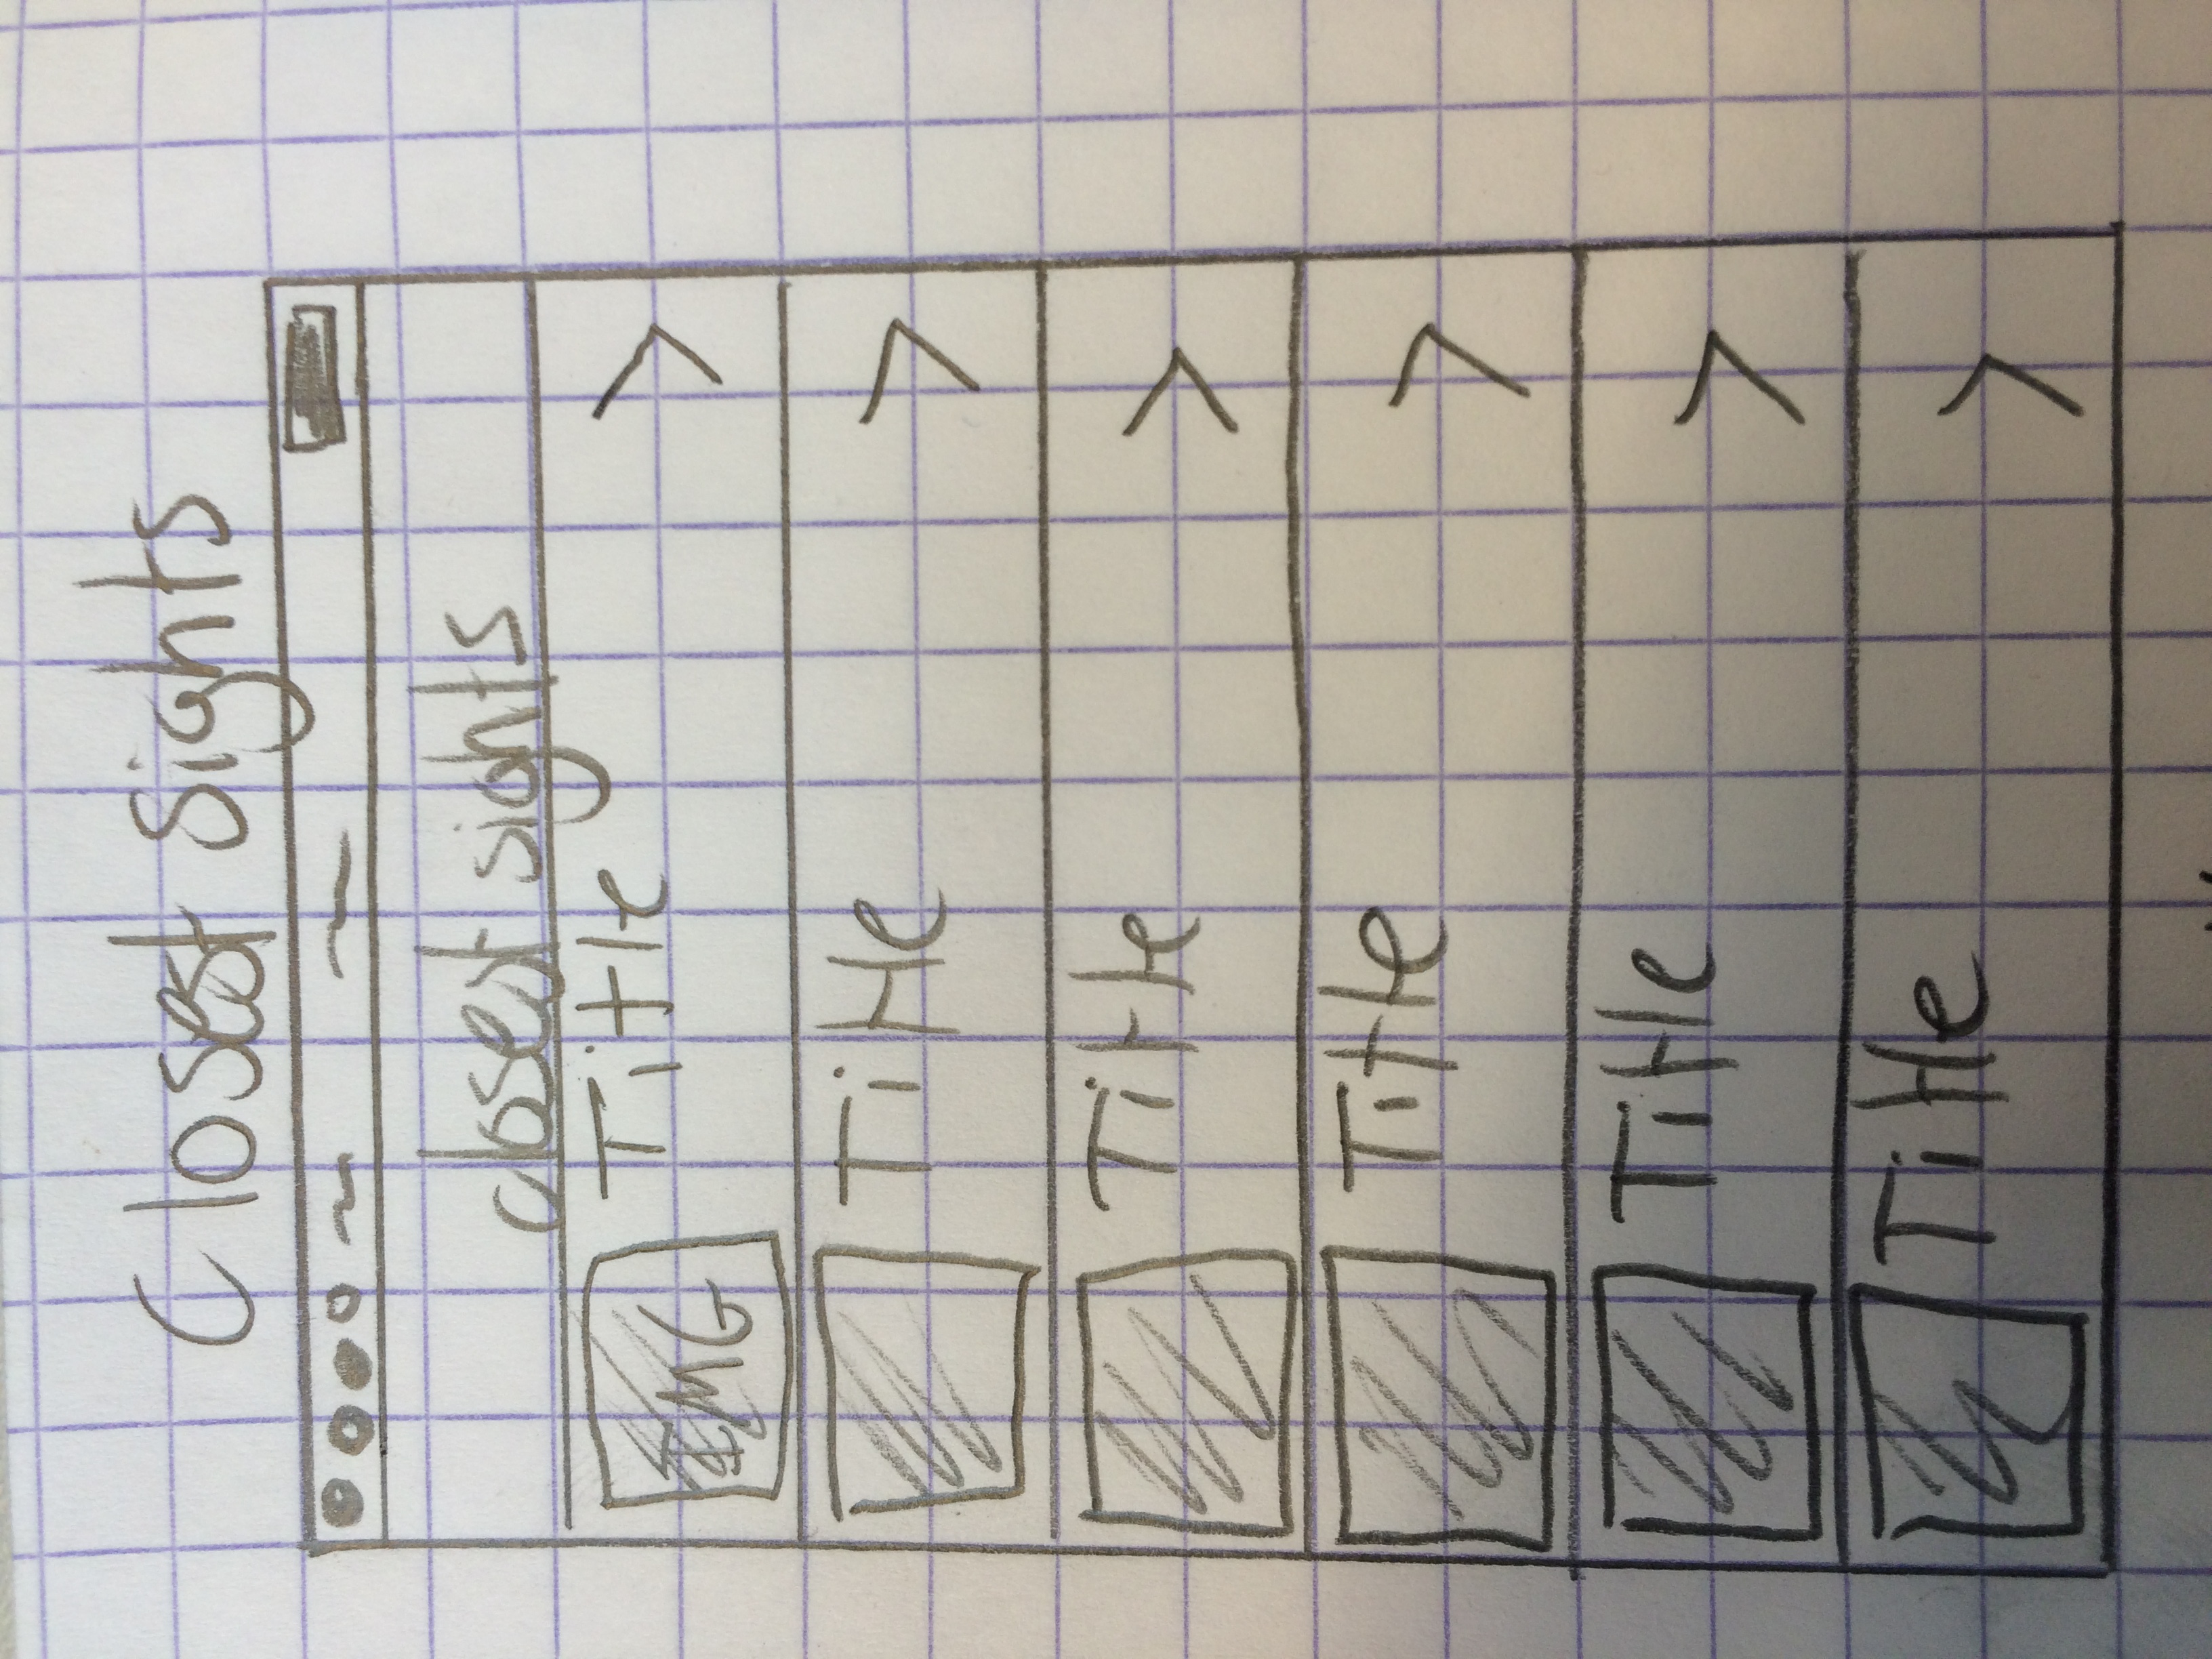 Closest sights
closest sights
Title
IMG
Title
Title
Title
Title
Title